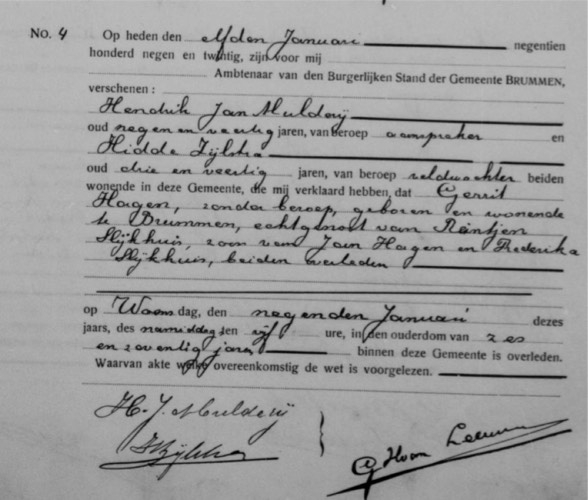 No. 4 Op heden den elfden Januari negentien
honderd negen en twintig, zijn voor mij
Ambtenaar van den Burgerlijken Stand der Gemeente BRUMMEN,
verschenen:
Hendrik Jan Mulderij
oud negen en veertig jaren, van beroep aanspreker en
Hidde Zijlstra
oud drie en veertig jaren, van beroep veldwachter beiden
wonende in deze Gemeente, die mij verklaard hebben, dat Gerrit
Hagen, zonder beroep, geboren en wonende
te Brummen, echtgenoot van Reintjen
Slijkhuis, zoon van Jan Hagen en Frederika
Slijkhuis, beiden overleden
op Woensdag, den negenden Januari dezes
jaars, des namiddags ten vijf ure, in den ouderdom van zes
en zeventig jaren binnen deze Gemeente is overleden.
Waarvan akte welke overeenkomstig de wet is voorgelezen.
H. J. Mulderij
HZijlstra